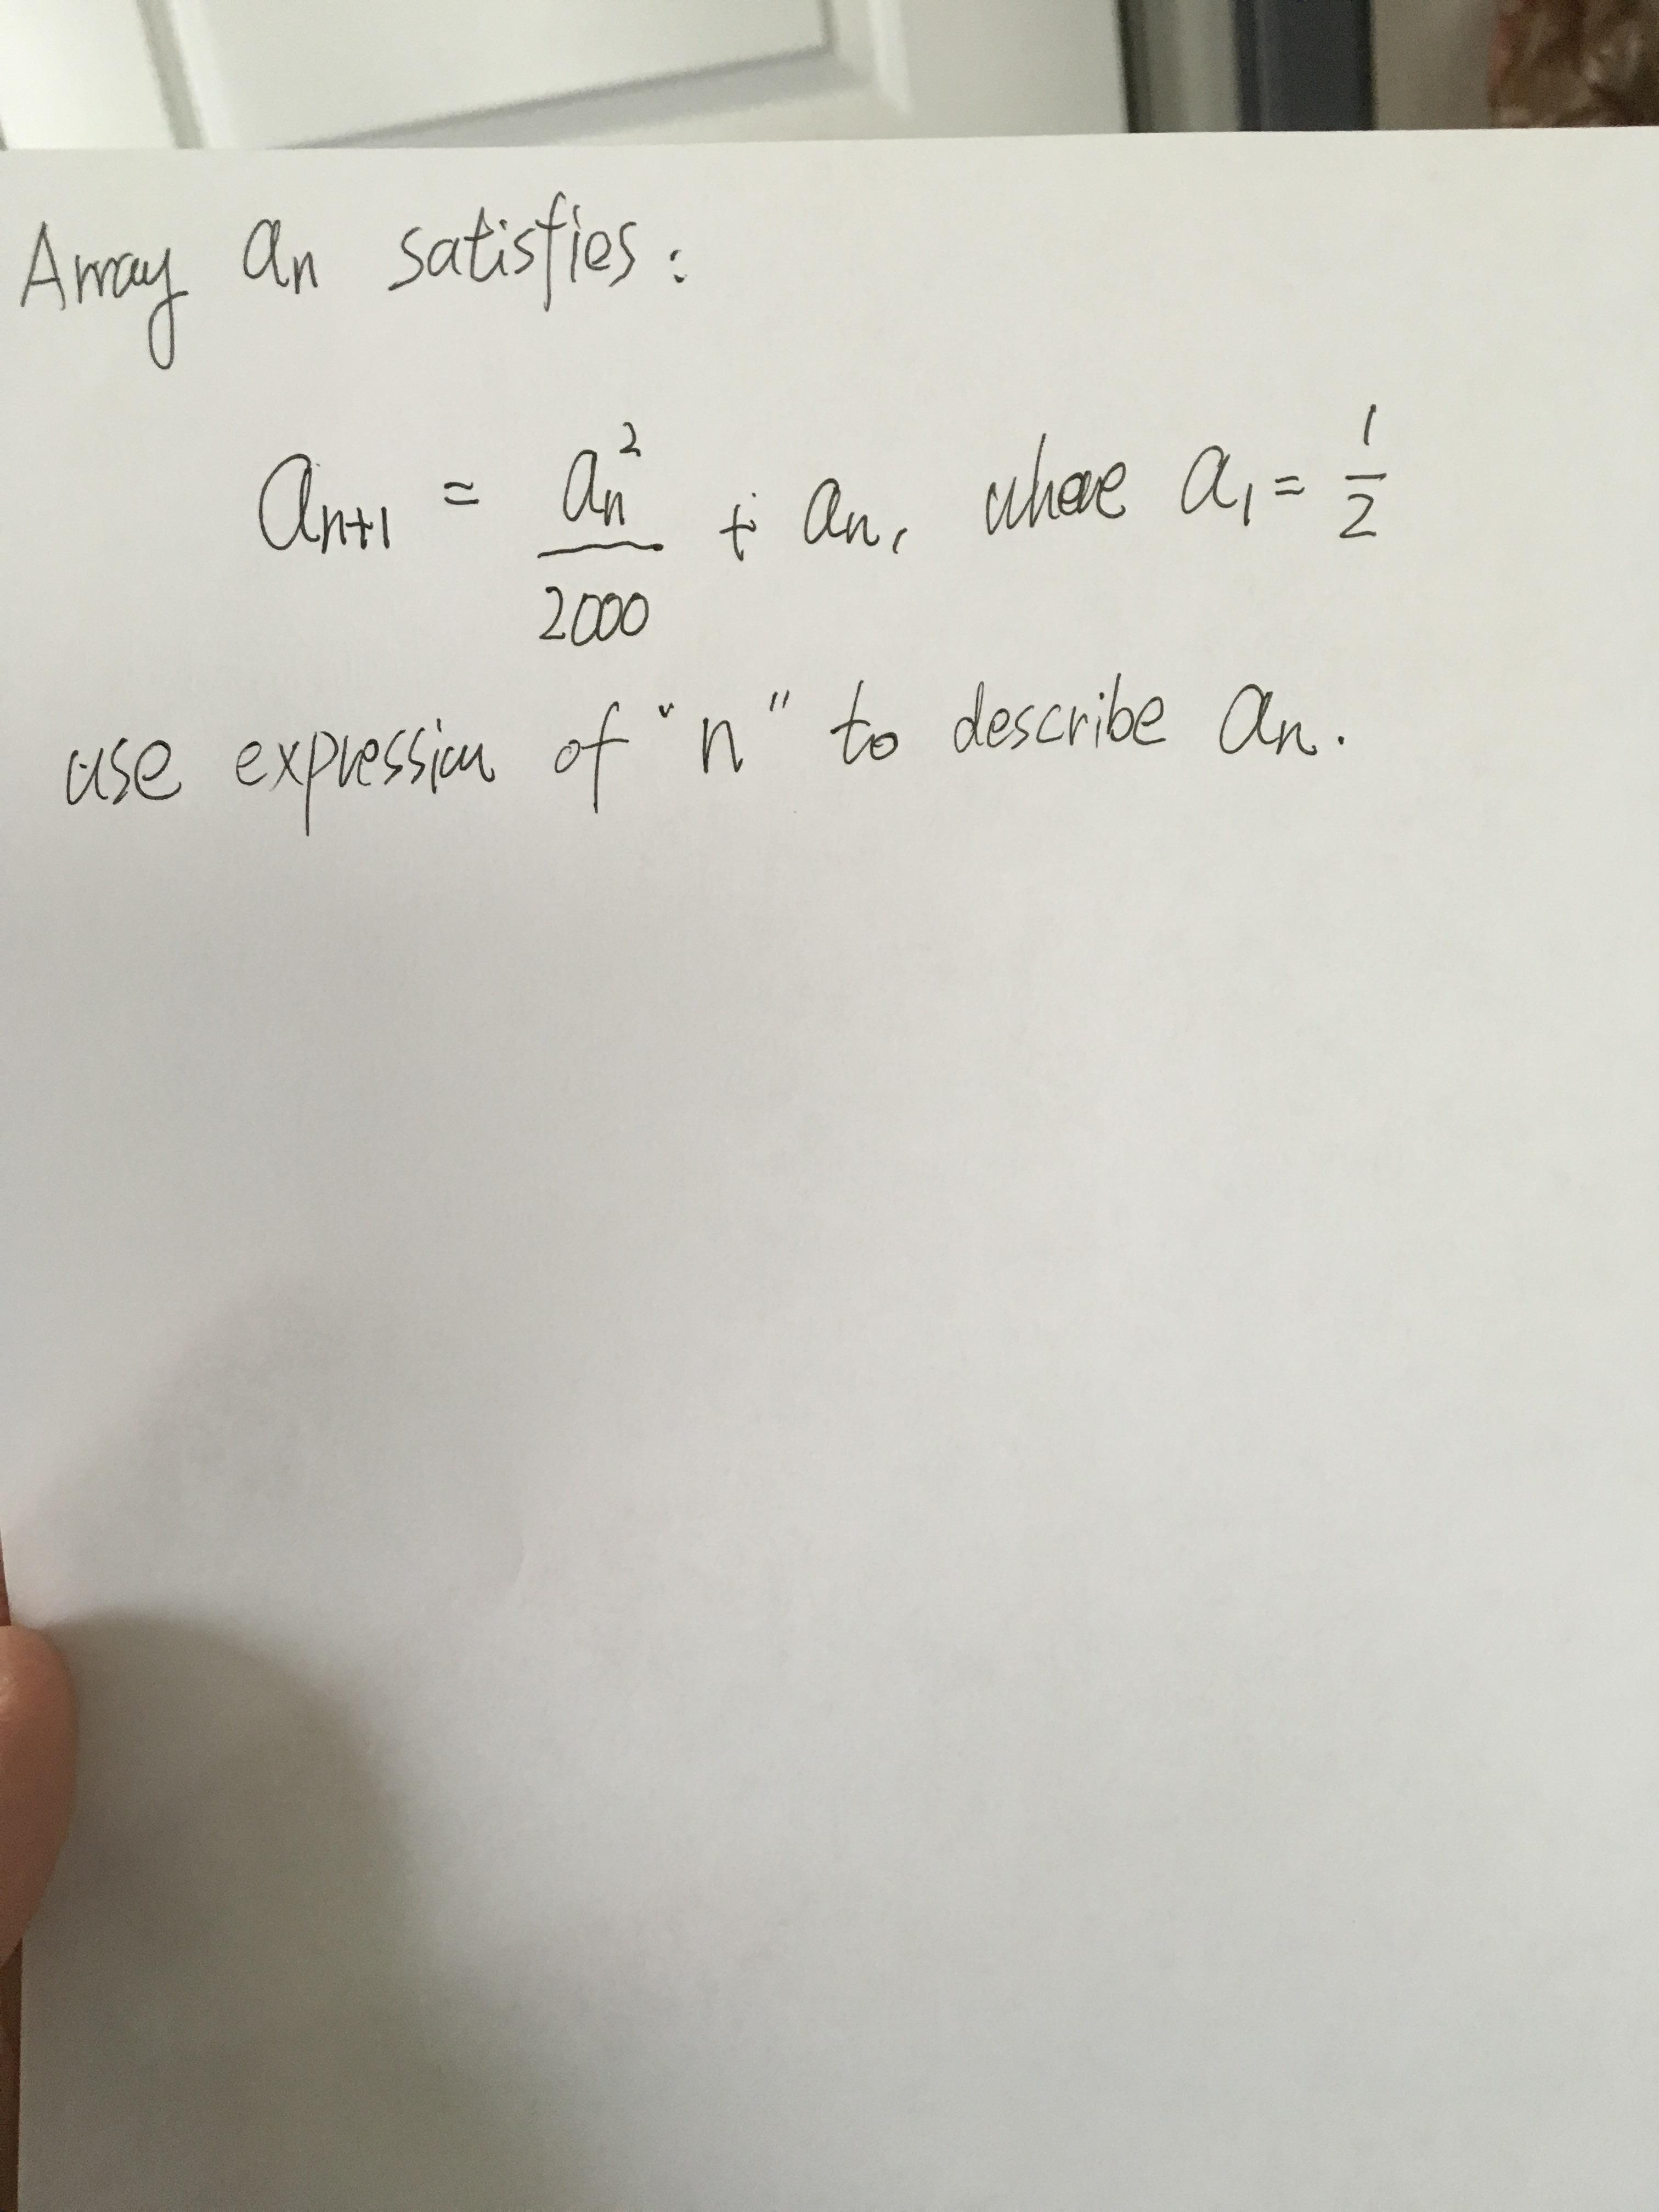 Array an satisfies:
an+1 = an²/2000 + an, where a1 = 1/2
use expression of "n" to describe an.